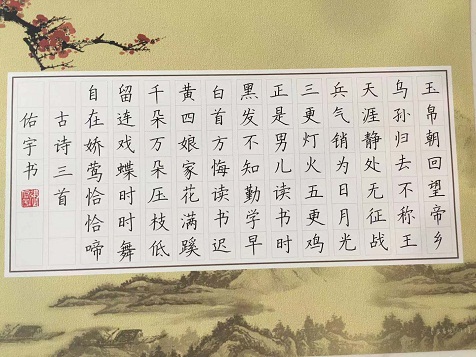 玉帛朝回望帝乡
乌孙归去不称王
天涯静处无征战
兵气销为日月光
三更灯火五更鸡
正是男儿读书时
黑发不知勤学早
白首方悔读书迟
黄四娘家花满蹊
千朵万朵压枝低
留连戏蝶时时舞
自在娇莺恰恰啼
古诗三首
佑宇书